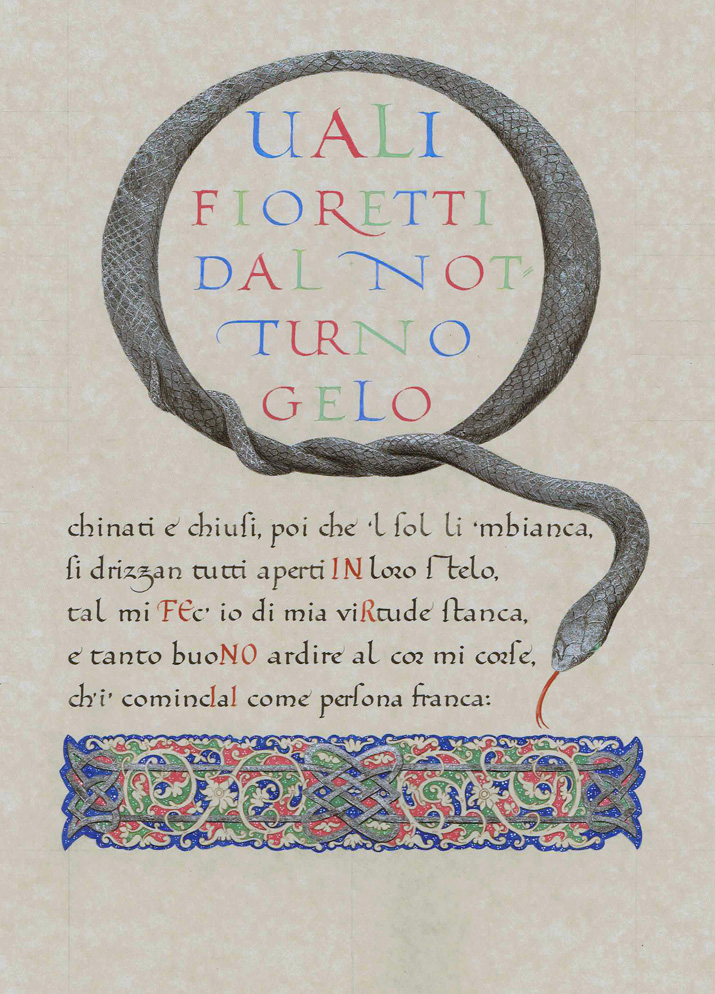 QUALI
FIORETTI
DAL NOT-
TURNO
GELO
chinati e chiuſi, poi che 'l ſol li 'mbianca,
ſi drizzan tutti aperti IN loro ſtelo,
tal mi FEc' io di mia viRtude ſtanca,
e tanto buoNO ardire al cor mi corſe,
ch'i' comincIaI come perſona franca: